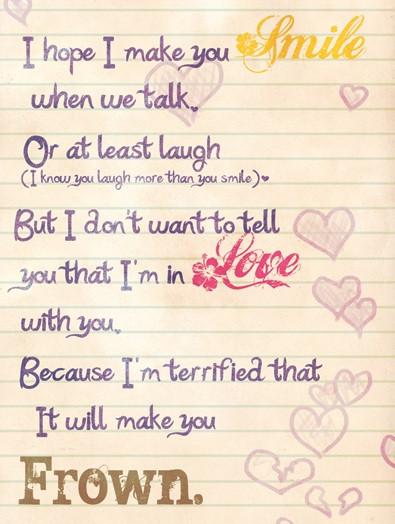 I hope I make you Smile
when we talk.
Or at least laugh
(I know you laugh more than you smile)
But I don't want to tell
you that I'm in Love
with you.
Because I'm terrified that
It will make you
Frown.